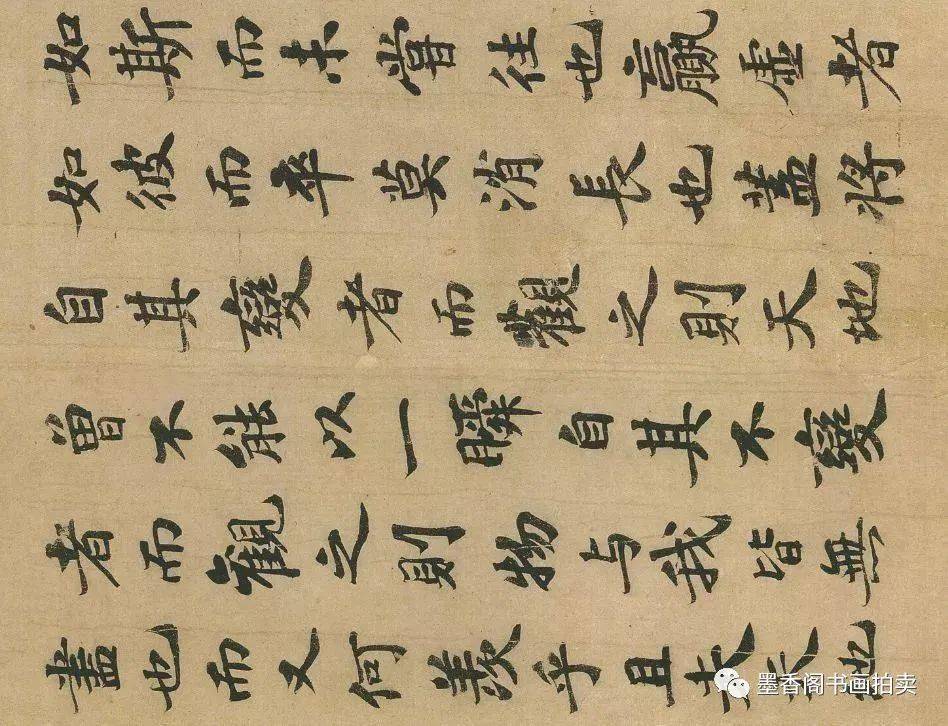 如斯而未嘗往也贏虛者
如彼而卒莫消長也蓋將
自其變者而觀之則天地
曾不能以一瞬自其不變
者而觀之則物与我皆無
盡也而又何羨乎且夫天地
墨香阁书画拍卖